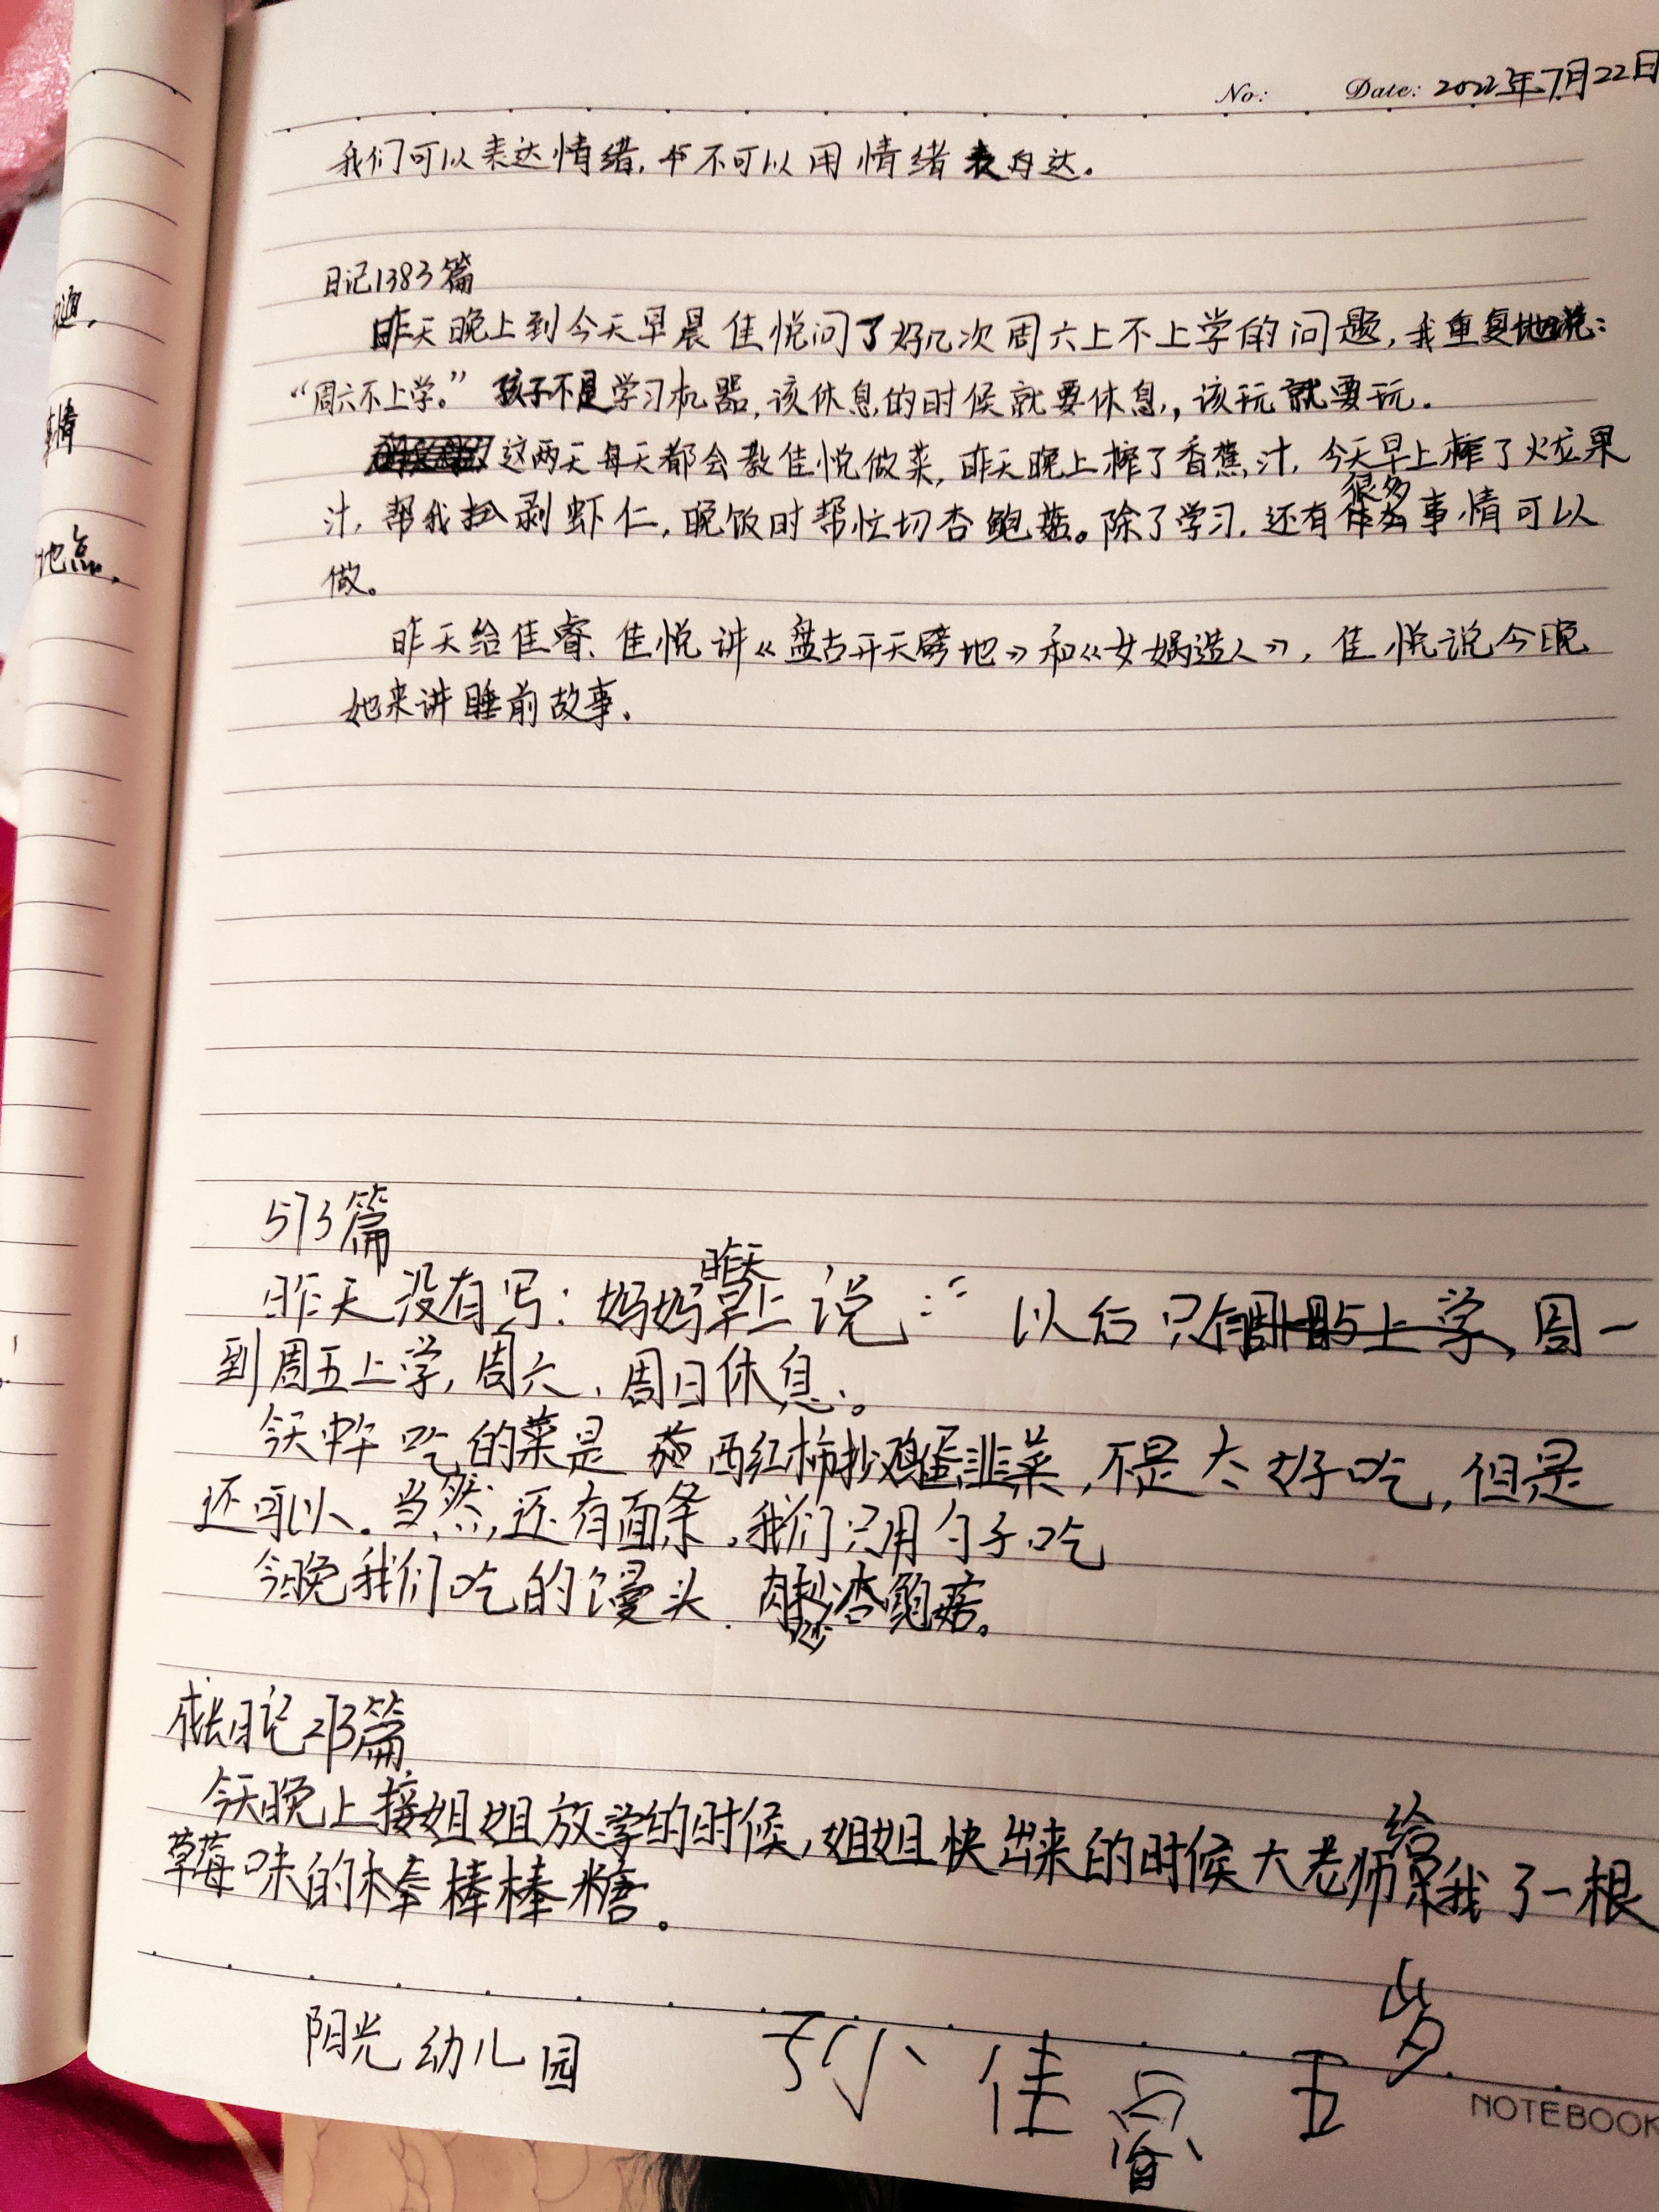 No: Date: 2022年7月22日
我们可以表达情绪,不可以用情绪表达。
日记1383篇
昨天晚上到今天早晨佳悦问了好几次周六上不上学的问题,我重复地说:
“周六不上学。”孩子不是学习机器,该休息的时候就要休息,,该玩就要玩.
这两天每天都会教佳悦做菜,昨天晚上榨了香蕉汁,今天早上榨了火龙果
汁,帮我剥虾仁,晚饭时帮忙切杏鲍菇。除了学习,还有很多事情可以
做。
昨天给佳睿、佳悦讲《盘古开天劈地》和《女娲造人》,佳悦说今晚
她来讲睡前故事.
地点.
573篇
昨天没有写:妈妈昨天早上说:“以后只周一
到周五上学,周六、周日休息。
今天中午吃的菜是西红柿抄鸡蛋韭菜,不是太好吃,但是
还可以.当然,还有面条,我们只用勺子吃
今晚我们吃的馒头.肉炒杏鲍菇。
成长日记213篇
今天晚上接姐姐放学的时候,姐姐快出来的时候大老师给我了一根
草莓味的棒棒棒糖。
阳光幼儿园 孙佳睿 五岁
NOTEBOOK